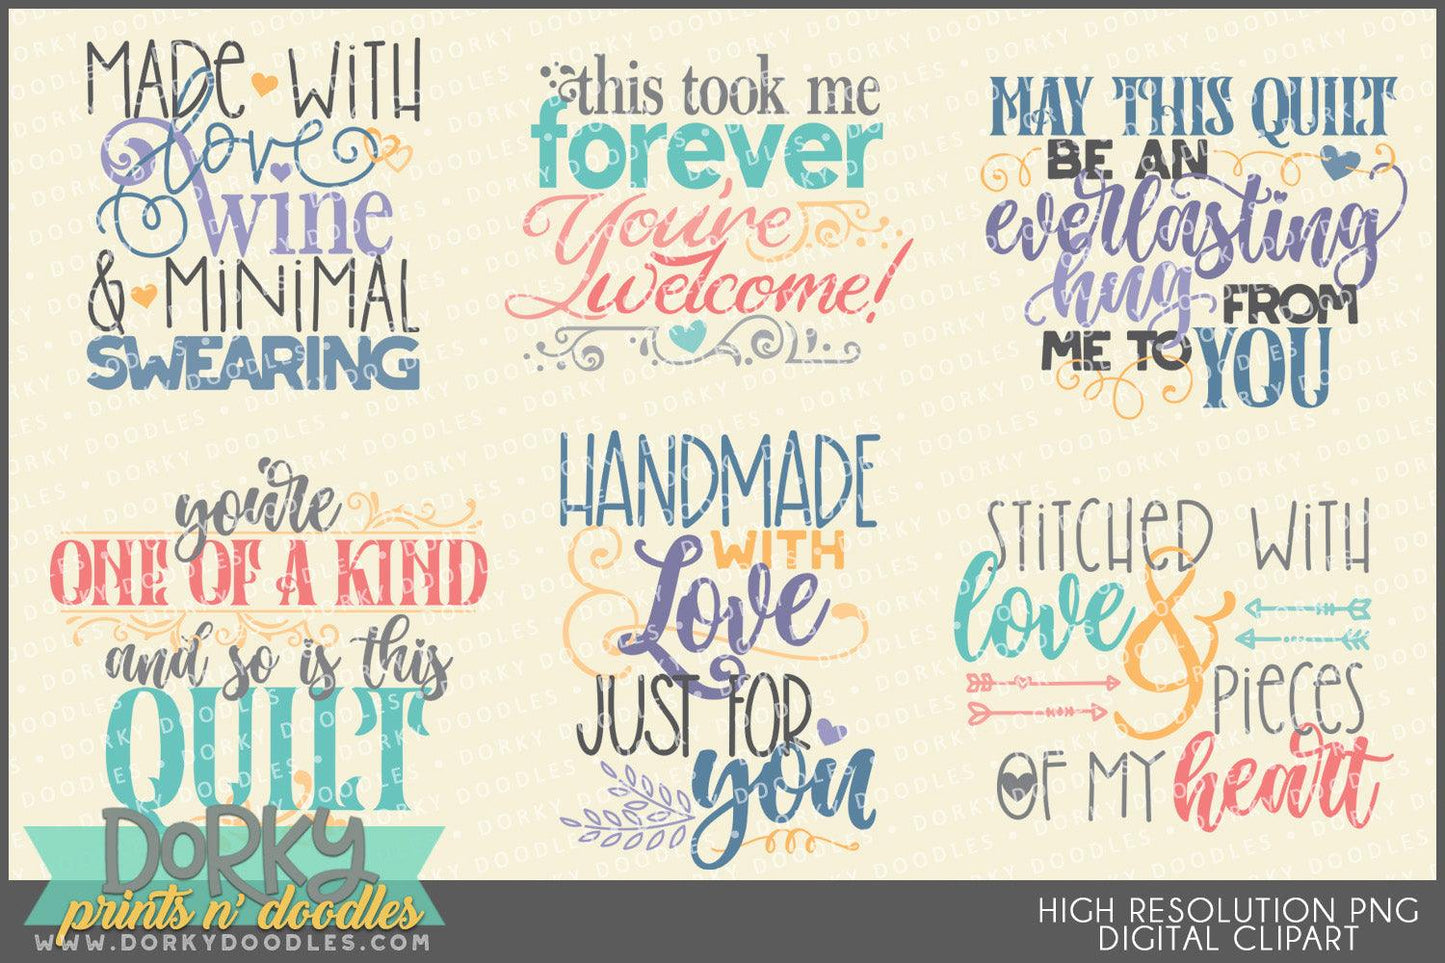 MADE WITH
love
wine
& MINIMAL
SWEARING
this took me
forever
You're
welcome!
MAY THIS QUILT
BE AN
everlasting
hug FROM
ME TO YOU
you're
ONE OF A KIND
and so is this
QUILT
HANDMADE
WITH
Love
JUST FOR
you
STITCHED WITH
love &
PIECES
OF MY heart
DORKY
prints n' doodles
WWW.DORKYDOODLES.COM
HIGH RESOLUTION PNG
DIGITAL CLIPART